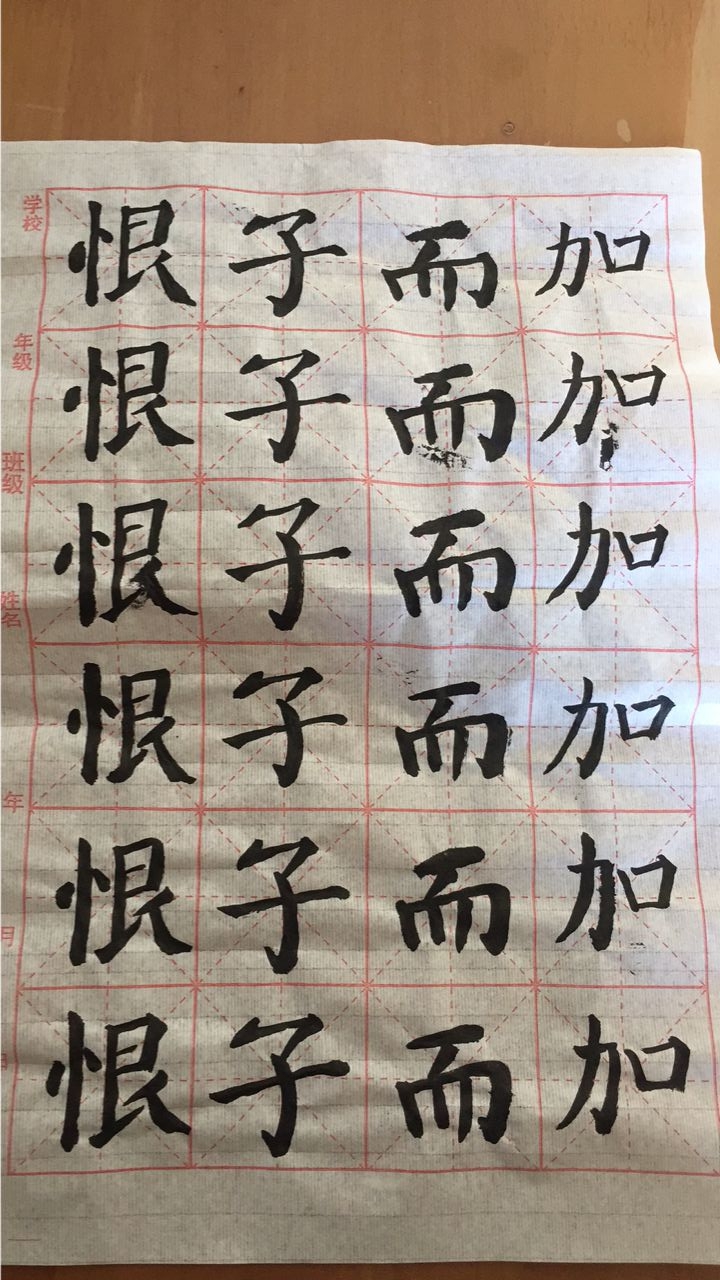 学校 年级 班级 姓名 年 月 日
恨子而加
恨子而加
恨子而加
恨子而加
恨子而加
恨子而加